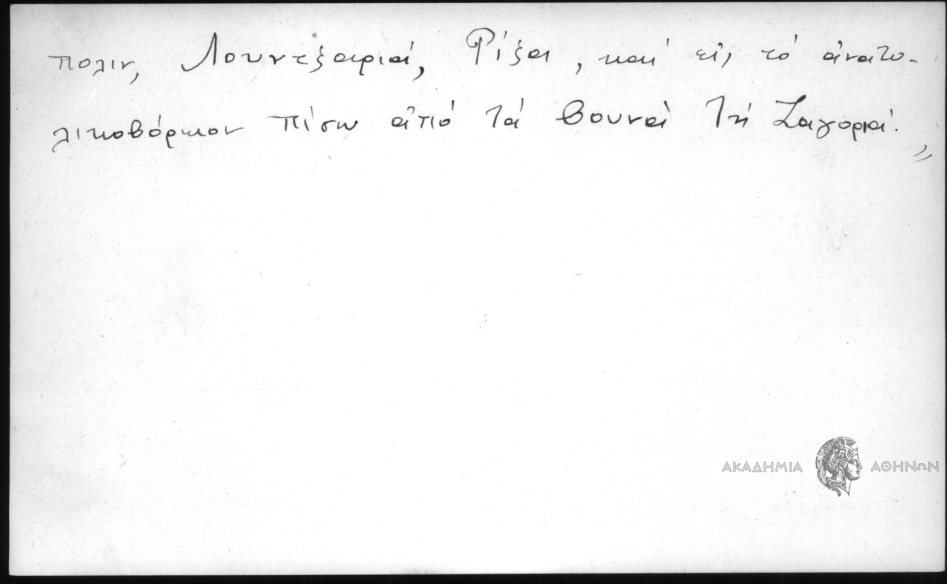 πολιν, Λουντζαριά, Ρίζα, καί εἰς τό ἀνατο-
λικοβόρειον πίσω ἀπό τά βουνά ἡ Ζαγοριά.„
ΑΚΑΔΗΜΙΑ ΑΘΗΝΩΝ